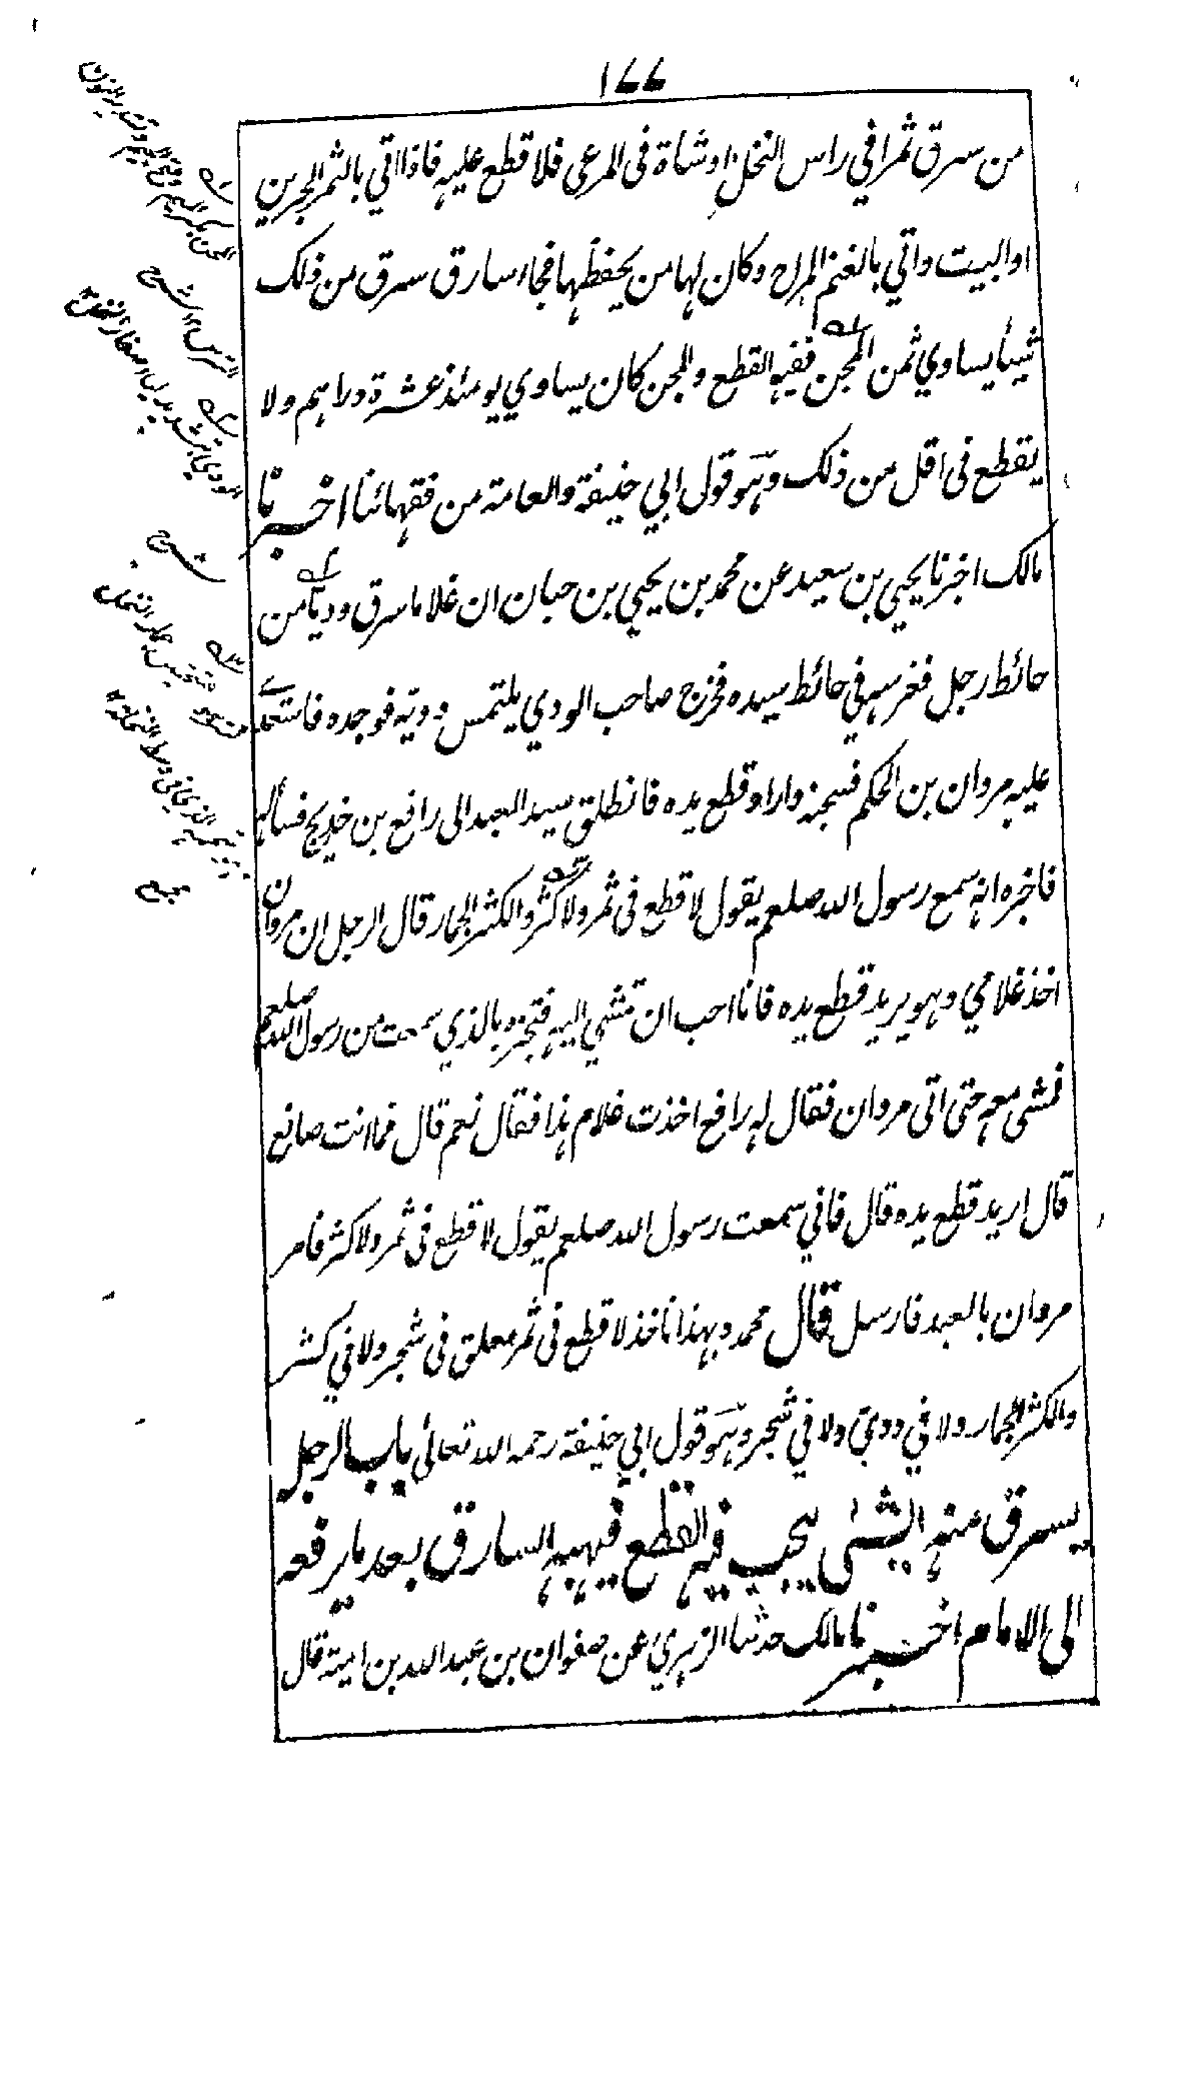 ١٧٧
من سرق ثمرا في راس النخل اوشاة فى المرعى فلا قطع عليه فاذا اتي بالثمر الجرين
او البيت واتي بالغنم المراح وكان لها من يحفظها فجاء سارق سرق من ذلك
شيئا يساوي ثمن المجن ففيه القطع والمجن كان يساوي يومئذ عشرة دراهم ولا
يقطع فى اقل من ذلك وهو قول ابي حنيفة والعامة من فقهائنا اخبرنا
مالك اخبرنا يحيي بن سعيد عن محمد بن يحيي بن حبان ان غلاما سرق وديا من
حائط رجل فغرسه في حائط سيده فخرج صاحب الودي يلتمس وديه فوجده فاستعدے
عليه مروان بن الحكم فسجنه واراد قطع يده فانطلق سيد العبد الى رافع بن خديج فساله
فاخبره انه سمع رسول الله صلعم يقول لا قطع فى ثمر ولا كثر والكثر الجمار قال الرجل ان مروان
اخذ غلامي وهو يريد قطع يده فانا احب ان تمشي اليه فتخبره بالذي سمعت من رسول الله صلعم
فمشى معه حتى اتى مروان فقال له رافع اخذت غلام هذا فقال نعم قال فما انت صانع
قال اريد قطع يده قال فاني سمعت رسول الله صلعم يقول لا قطع فى ثمر ولا كثر فامر
مروان بالعبد فارسل قال محمد وبهذا ناخذ لا قطع فى ثمر معلق فى شجر ولا في كثر
والكثر الجمار ولا في ودي ولا في شجر وهو قول ابي حنيفة رحمه الله تعالى باب الرجل
يسرق منه الشئى يجب فيه القطع فيهبه السارق بعد ما يرفعه
الى الامام اخبرنا مالك حدثنا الزهري عن صفوان بن عبد الله بن امية قال